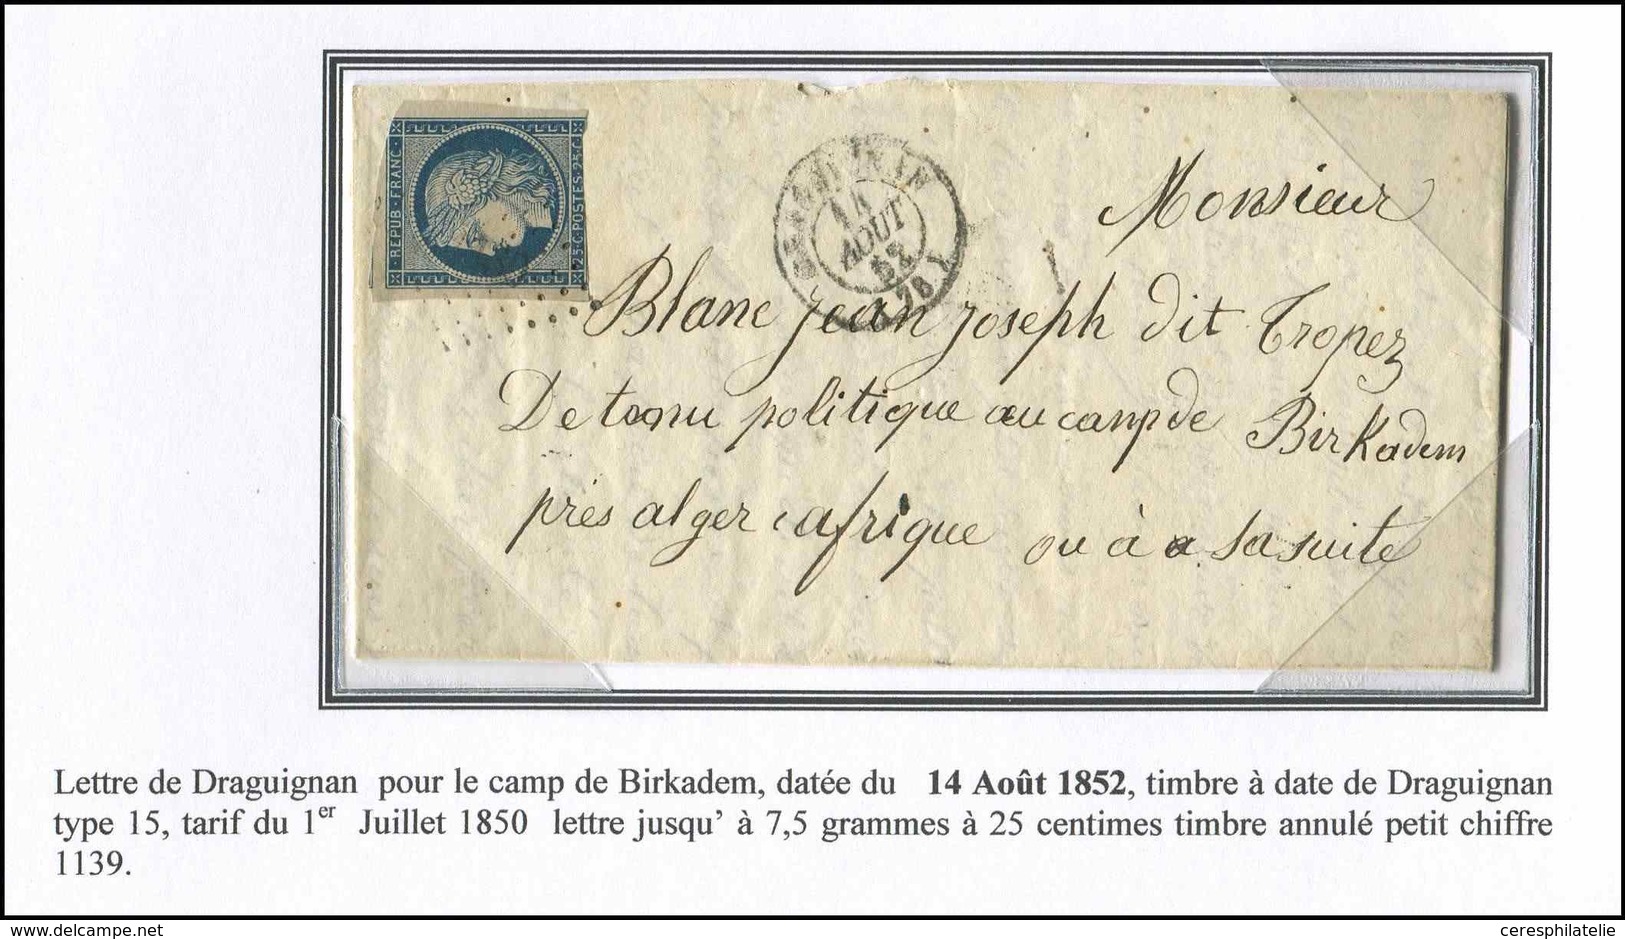 REPUB·FRANC·
25·C·POSTES·25·C·
DRAGUIGNAN
14
AOUT
52
(78)
Monsieur
Blanc Jean Joseph dit Tropez
Detenu politique au camp de BirKadem
près alger afrique ou à sa suite
Lettre de Draguignan pour le camp de Birkadem, datée du 14 Août 1852, timbre à date de Draguignan
type 15, tarif du 1er Juillet 1850 lettre jusqu' à 7,5 grammes à 25 centimes timbre annulé petit chiffre
1139.
www.delcampe.net
ceresphilatelie